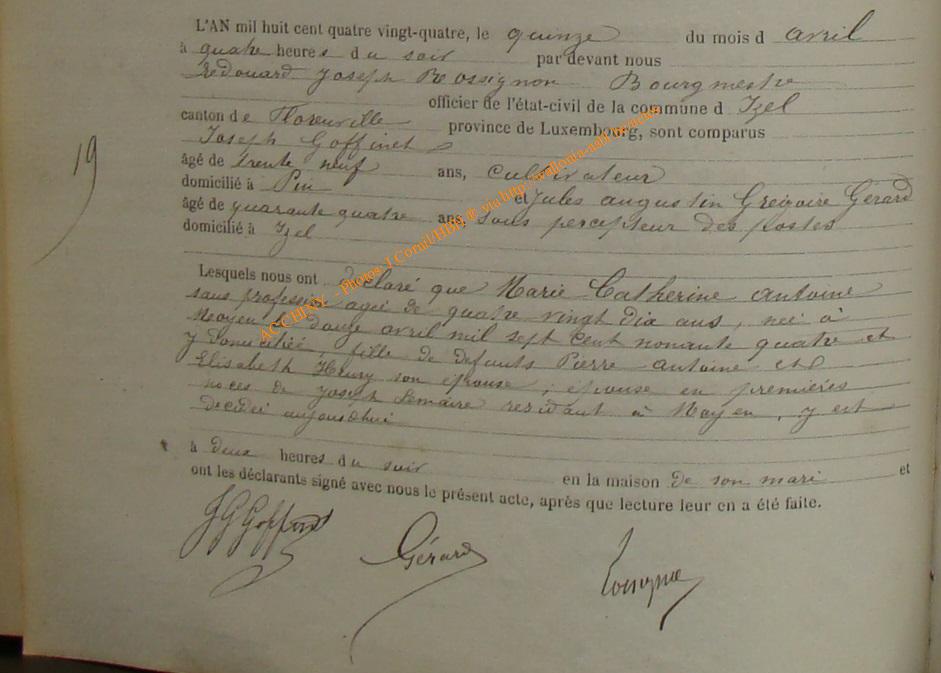 L'AN mil huit cent quatre vingt-quatre, le quinze du mois d avril
à quatre heures du soir par devant nous
Edouard Joseph Rossignon Bourgmestre
officier de l'état-civil de la commune d Izel
canton de Florenville province de Luxembourg, sont comparus
Joseph Goffinet
19
âgé de trente neuf ans, cultivateur
domicilié à Pin et Jules augustin Grégoire Gérard
âgé de quarante quatre ans, sous percepteur des postes
domicilié à Izel
Lesquels nous ont déclaré que Marie Catherine Antoine
sans profession agée de quatre vingt dix ans, née à
Moyen le douze avril mil sept cent nonante quatre et
y domiciliée, fille de defunts Pierre Antoine et
Elisabeth Henry son épouse, épouse en premières
noces de Joseph Lemaire residant à Moyen, y est
decedée aujourdhui
à deux heures du soir en la maison de son mari et
ont les déclarants signé avec nous le présent acte, après que lecture leur en a été faite.
JG Goffinet Gérard
ACCHINY - Photos J Cornil/HBN ® via